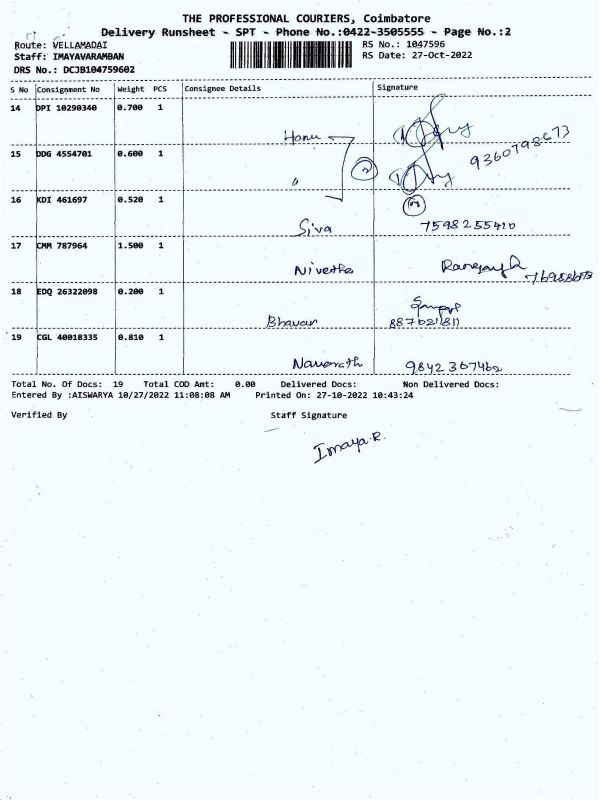 THE PROFESSIONAL COURIERS, Coimbatore
Delivery Runsheet - SPT - Phone No.:0422-3505555 - Page No.:2
Route: VELLAMADAI RS No.: 1047596
Staff: IMAYAVARAMBAN RS Date: 27-Oct-2022
DRS No.: DCJB104759602
S No Consignment No Weight PCS Consignee Details Signature
14 DPI 10290340 0.700 1
Hanu
15 DDG 4554701 0.600 1 9360798673
"
16 KDI 461697 0.520 1
Siva 7598255410
17 CMM 787964 1.500 1
Nivetha
18 EDQ 26322098 0.200 1
Bhavan
19 CGL 40018335 0.810 1
9842367462
Total No. Of Docs: 19 Total COD Amt: 0.00 Delivered Docs: Non Delivered Docs:
Entered By :AISWARYA 10/27/2022 11:08:08 AM Printed On: 27-10-2022 10:43:24
Verified By Staff Signature
Imaya.R.